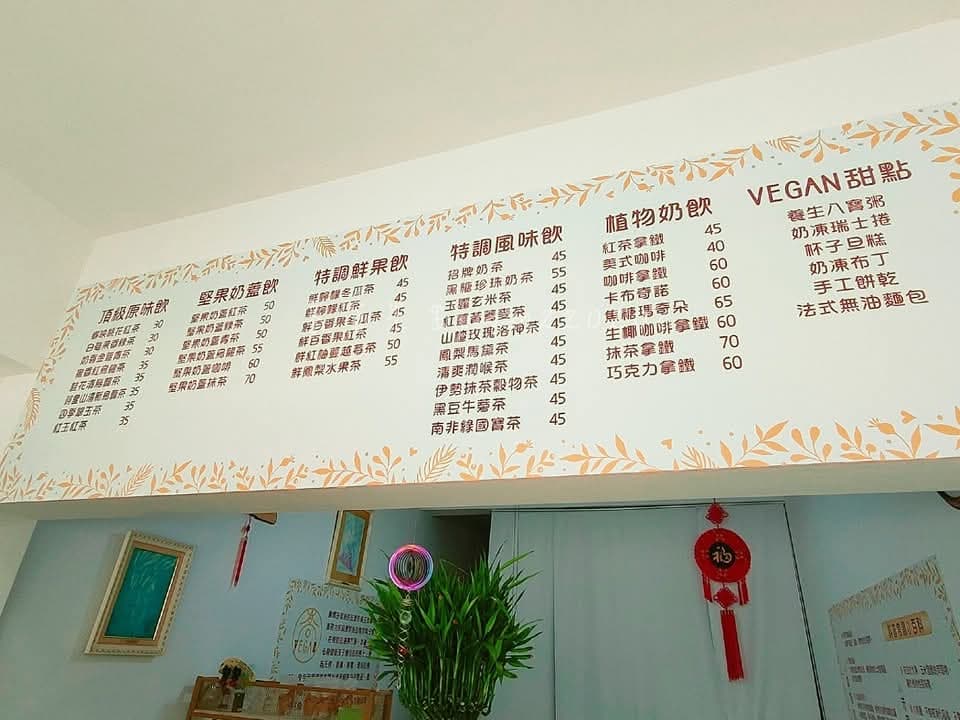 頂級原味飲
蜜桃花紅茶 30
白葡果香綠茶 30
奶香金萱青茶 30
蜜香紅烏龍茶 35
桂花清烏龍茶 35
阿里山清甎烏龍茶 35
四季碧玉茶 35
紅玉紅茶 35
堅果奶蓋飲
堅果奶蓋紅茶 50
堅果奶蓋綠茶 50
堅果奶蓋青茶 50
堅果奶蓋烏龍茶 55
堅果奶蓋咖啡 60
堅果奶蓋抹茶 70
特調鮮果飲
鮮檸檬冬瓜茶 45
鮮檸檬紅茶 45
鮮百香果冬瓜茶 45
鮮百香果紅茶 45
鮮紅柚蔓越莓茶 50
鮮鳳梨水果茶 55
特調風味飲
招牌奶茶 45
黑糖珍珠奶茶 55
玉露玄米茶 45
紅豆黃蕎麥茶 45
山楂玫瑰洛神茶 45
鳳梨馬黛茶 45
清爽潤喉茶 45
伊勢抹茶穀物茶 45
黑豆牛蒡茶 45
南非綠國寶茶 45
植物奶飲
紅茶拿鐵 45
美式咖啡 40
咖啡拿鐵 60
卡布奇諾 60
焦糖瑪奇朵 65
生椰咖啡拿鐵 60
抹茶拿鐵 70
巧克力拿鐵 60
VEGAN甜點
養生八寶粥
奶凍瑞士捲
杯子旦糕
奶凍布丁
手工餅乾
法式無油麵包
福
VEGAN